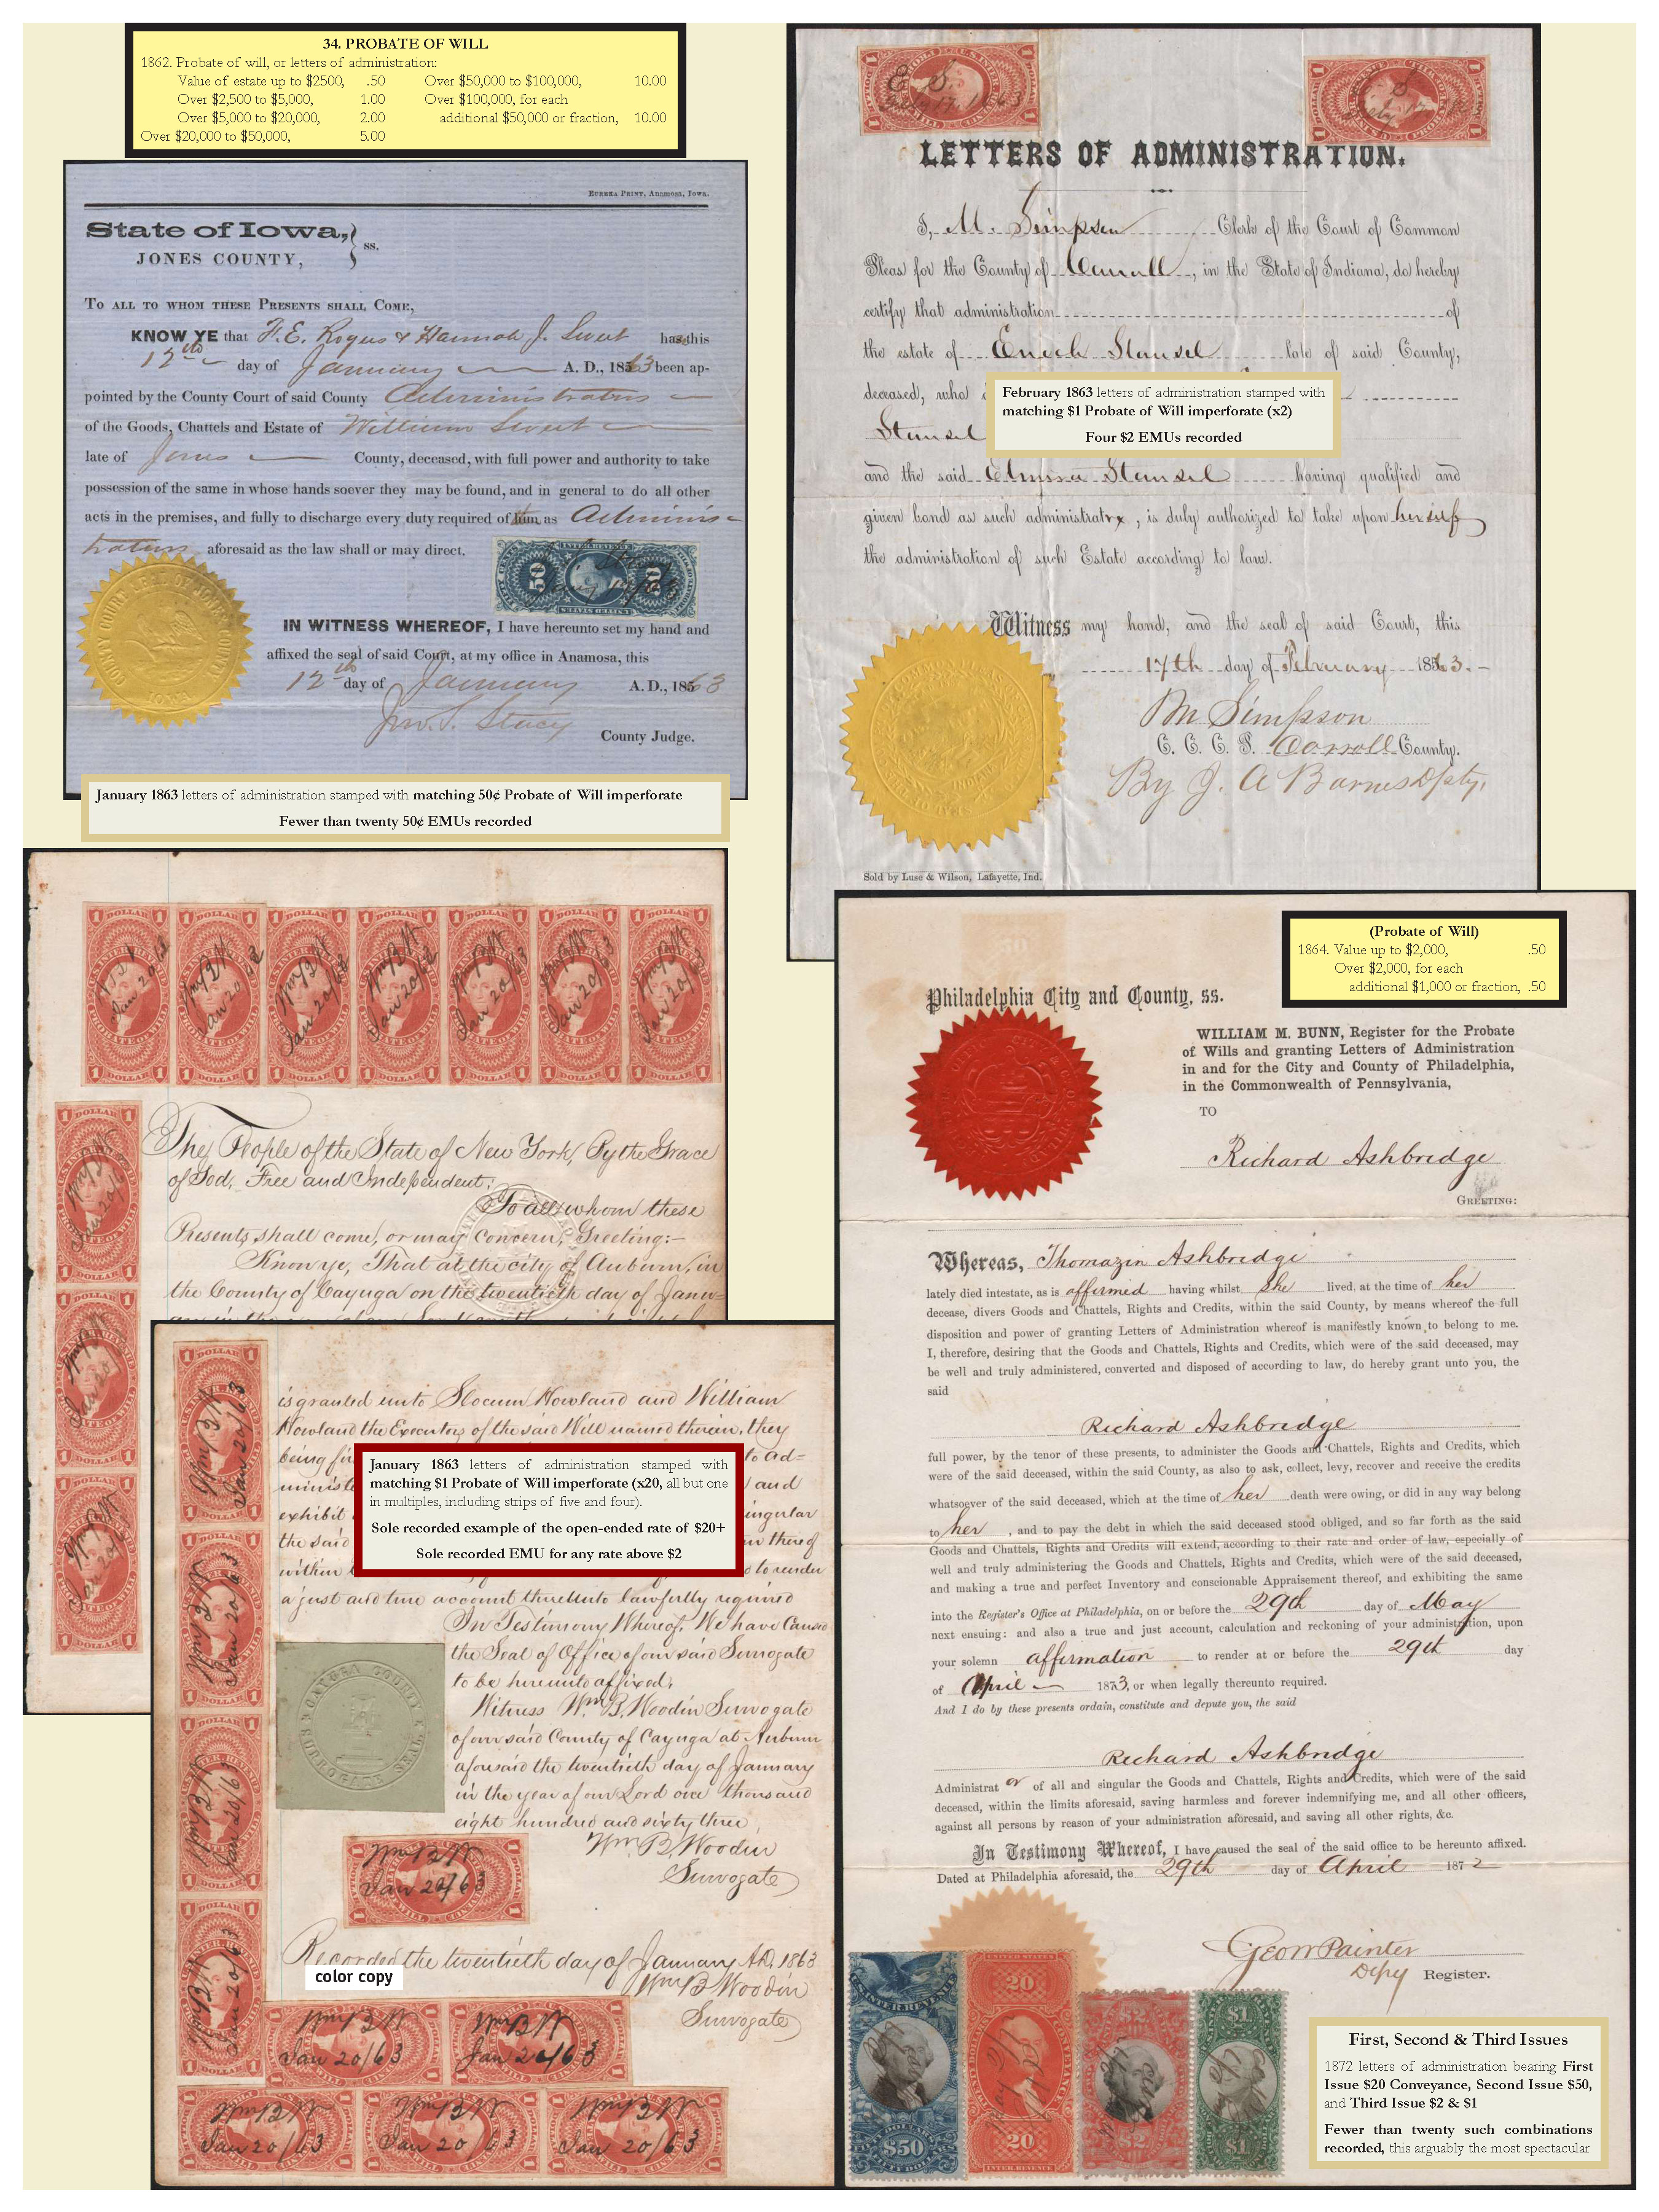 34. PROBATE OF WILL
1862. Probate of will, or letters of administration:
Value of estate up to $2500, .50 Over $50,000 to $100,000, 10.00
Over $2,500 to $5,000, 1.00 Over $100,000, for each
Over $5,000 to $20,000, 2.00 additional $50,000 or fraction, 10.00
Over $20,000 to $50,000, 5.00
EUREKA PRINT, Anamosa, Iowa.
State of Iowa,
JONES COUNTY, } ss.
TO ALL TO WHOM THESE PRESENTS SHALL COME,
KNOW YE that F. E. Rogers & Hannah J. Sweet has this
12th day of January A. D., 1863 been ap-
pointed by the County Court of said County Administrators
of the Goods, Chattels and Estate of William Sweet
late of Jones County, deceased, with full power and authority to take
possession of the same in whose hands soever they may be found, and in general to do all other
acts in the premises, and fully to discharge every duty required of him as Adminis-
trators aforesaid as the law shall or may direct.
50 INTER. REVENUE 50
UNITED STATES
COUNTY COURT SEAL OF JONES COUNTY
IOWA
IN WITNESS WHEREOF, I have hereunto set my hand and
affixed the seal of said Court, at my office in Anamosa, this
12th day of January A. D., 1863
Jno. S. Stacy
County Judge.
January 1863 letters of administration stamped with matching 50¢ Probate of Will imperforate
Fewer than twenty 50¢ EMUs recorded
LETTERS OF ADMINISTRATION.
I, M. Simpson Clerk of the Court of Common
Pleas for the County of Carroll, in the State of Indiana, do hereby
certify that administration of
the estate of Enoch Stansel late of said County,
deceased, who
Stansel
and the said Elmira Stansel having qualified and
given bond as such administratrx, is duly authorized to take upon herself
the administration of such Estate according to law.
Witness my hand, and the seal of said Court, this
17th day of February 1863.
M Simpson
C. C. C. P. Carroll County.
By J. A Barnes Dpty.
Sold by Luse & Wilson, Lafayette, Ind.
February 1863 letters of administration stamped with
matching $1 Probate of Will imperforate (x2)
Four $2 EMUs recorded
The People of the State of New York, By the Grace
of God, Free and Independent:
To all whom these
Presents shall come, or may concern, Greeting:-
Know ye, That at the city of Auburn, in
the County of Cayuga on the twentieth day of Janu-
is granted unto Slocum Howland and William
Howland the Executors of the said Will named therein, they
being fi to ad-
minist and
exhibit ingular
the said thereof
within to render
a just and true account thereunto lawfully required
In Testimony Whereof, We have Caused
the Seal of Office of our said Surrogate
to be hereunto affixed.
Witness Wm. B. Woodin Surrogate
of our said County of Cayuga at Auburn
aforesaid the twentieth day of January
in the year of our Lord one thousand
eight hundred and sixty three
Wm. B. Woodin
Surrogate
CAYUGA COUNTY
SURROGATE SEAL
Wm B W
Jan 20/63
Recorded the twentieth day of January A.D. 1863
Wm B Woodin
Surrogate
color copy
Wm B W
Jan 20/63
Wm B W
Jan 20/63
Wm B W
Jan 20/63
Wm B W
Jan 20 63
Wm B W
Jan 20/63
January 1863 letters of administration stamped with
matching $1 Probate of Will imperforate (x20, all but one
in multiples, including strips of five and four).
Sole recorded example of the open-ended rate of $20+
Sole recorded EMU for any rate above $2
(Probate of Will)
1864. Value up to $2,000, .50
Over $2,000, for each
additional $1,000 or fraction, .50
Philadelphia City and County, ss.
WILLIAM M. BUNN, Register for the Probate
of Wills and granting Letters of Administration
in and for the City and County of Philadelphia,
in the Commonwealth of Pennsylvania,
TO
Richard Ashbridge
GREETING:
Whereas, Thomazin Ashbridge
lately died intestate, as is affirmed having whilst She lived, at the time of her
decease, divers Goods and Chattels, Rights and Credits, within the said County, by means whereof the full
disposition and power of granting Letters of Administration whereof is manifestly known to belong to me.
I, therefore, desiring that the Goods and Chattels, Rights and Credits, which were of the said deceased, may
be well and truly administered, converted and disposed of according to law, do hereby grant unto you, the
said
Richard Ashbridge
full power, by the tenor of these presents, to administer the Goods and Chattels, Rights and Credits, which
were of the said deceased, within the said County, as also to ask, collect, levy, recover and receive the credits
whatsoever of the said deceased, which at the time of her death were owing, or did in any way belong
to her, and to pay the debt in which the said deceased stood obliged, and so far forth as the said
Goods and Chattels, Rights and Credits will extend, according to their rate and order of law, especially of
well and truly administering the Goods and Chattels, Rights and Credits, which were of the said deceased,
and making a true and perfect Inventory and conscionable Appraisement thereof, and exhibiting the same
into the Register's Office at Philadelphia, on or before the 29th day of May
next ensuing: and also a true and just account, calculation and reckoning of your administration, upon
your solemn affirmation to render at or before the 29th day
of April 1873, or when legally thereunto required.
And I do by these presents ordain, constitute and depute you, the said
Richard Ashbridge
Administrat or of all and singular the Goods and Chattels, Rights and Credits, which were of the said
deceased, within the limits aforesaid, saving harmless and forever indemnifying me, and all other officers,
against all persons by reason of your administration aforesaid, and saving all other rights, &c.
In Testimony Whereof, I have caused the seal of the said office to be hereunto affixed.
Dated at Philadelphia aforesaid, the 29th day of April 1872
Geo W Painter
Depy Register.
$50
20 20
$2 $2
$1 $1
First, Second & Third Issues
1872 letters of administration bearing First
Issue $20 Conveyance, Second Issue $50,
and Third Issue $2 & $1
Fewer than twenty such combinations
recorded, this arguably the most spectacular